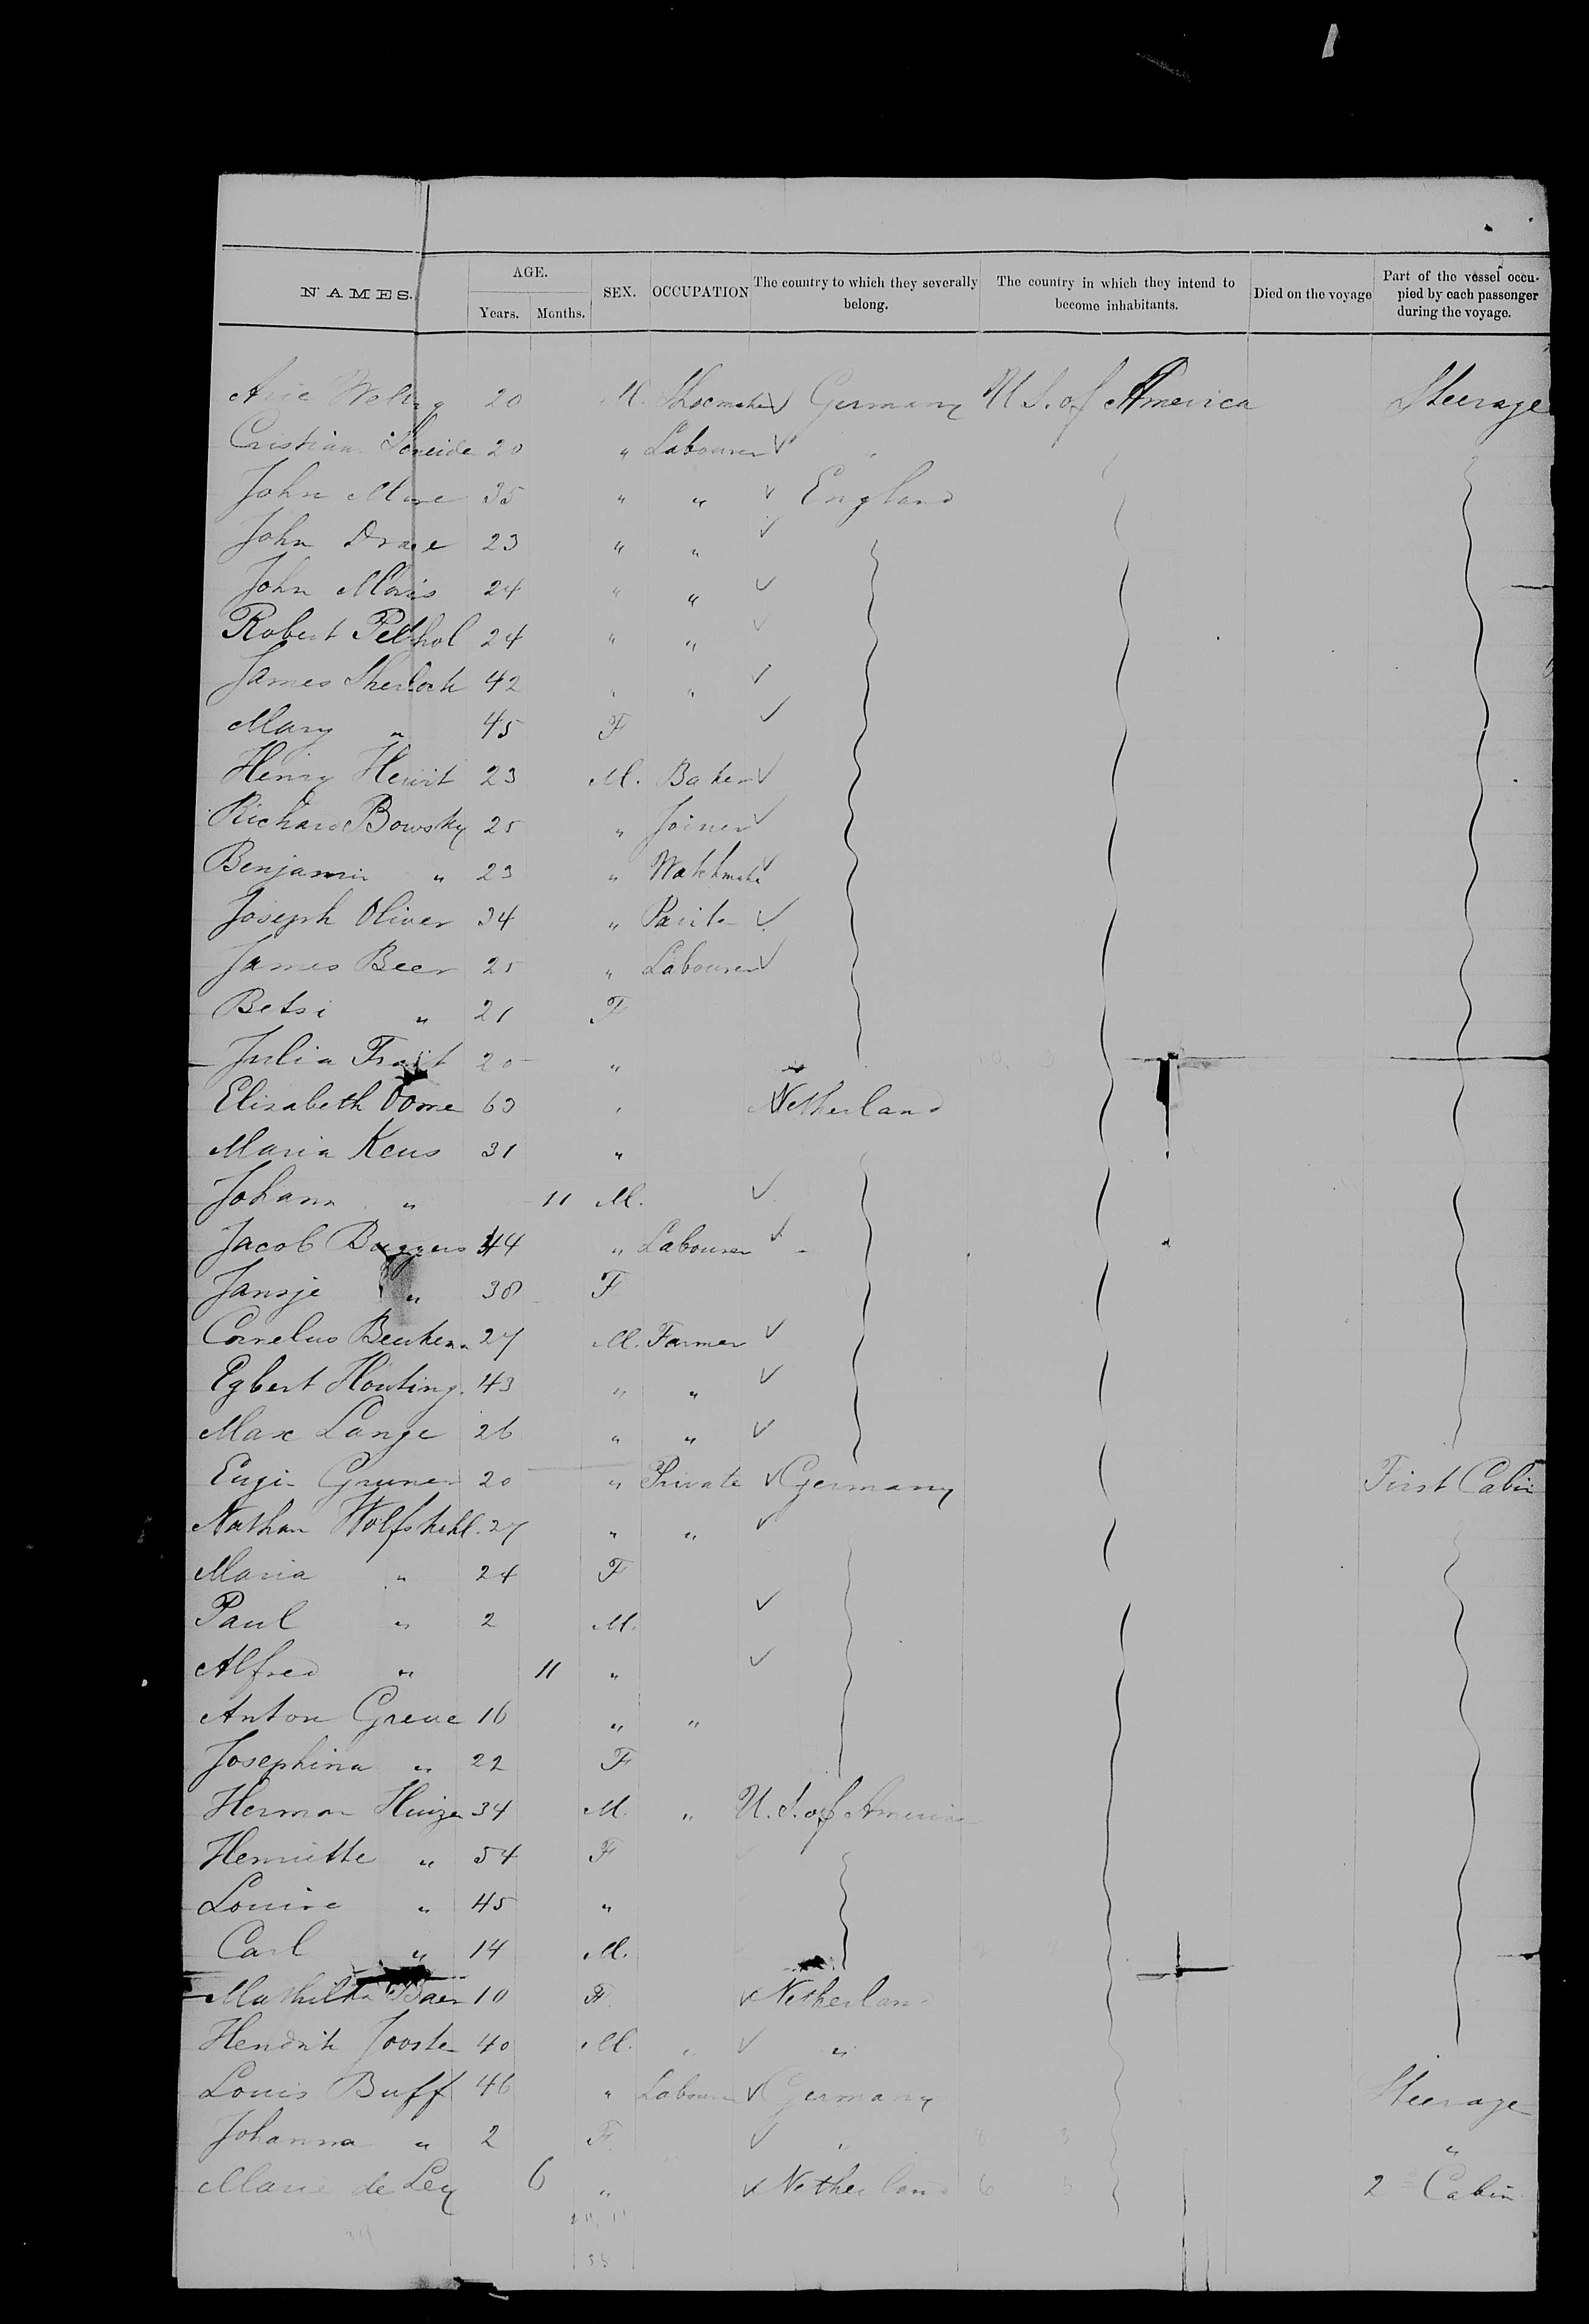 NAMES. AGE. Years. Months. SEX. OCCUPATION The country to which they severally belong. The country in which they intend to become inhabitants. Died on the voyage Part of the vessel occupied by each passenger during the voyage.
Arie 20 M. Shoemaker Germany U S. of America Steerage
Cristian 20 " Labourer "
John 35 " " England
John 23 " "
John 24 " "
Robert 24 " "
James Sherlock 42 " "
Mary " 45 F
Henry Hewit 23 M. Baker
Richard Bowsky 25 " Joiner
Benjamin " 23 "
Joseph Oliver 34 "
James Beer 25 " Labourer
Betsi " 21 F
Julia 20 "
Elisabeth 63 " Netherland
Maria Keus 31 "
Johann " 11 M.
Jacob 44 " Labourer
Jansje " 38 F
Cornelus 27 M. Farmer
Egbert Houting. 43 " "
Max Lange 26 " "
Gruner 20 " Private Germany First Cabin
Nathan Wolfskehl. 27 " "
Maria " 24 F
Paul " 2 M.
Alfred " 11 "
Anton Greve 16 " "
Josephina " 22 F
Herman 34 M. " U. S. of America
Henriette " 54 F
Louise " 45 "
Carl " 14 M.
Baer 10 F. Netherland
Hendrik Jooste 40 M. " "
Louis Buff 46 " Labourer Germany Steerage
Johanna " 2 F. " "
Marie de Ley 6 " Netherland 2 Cabin
39